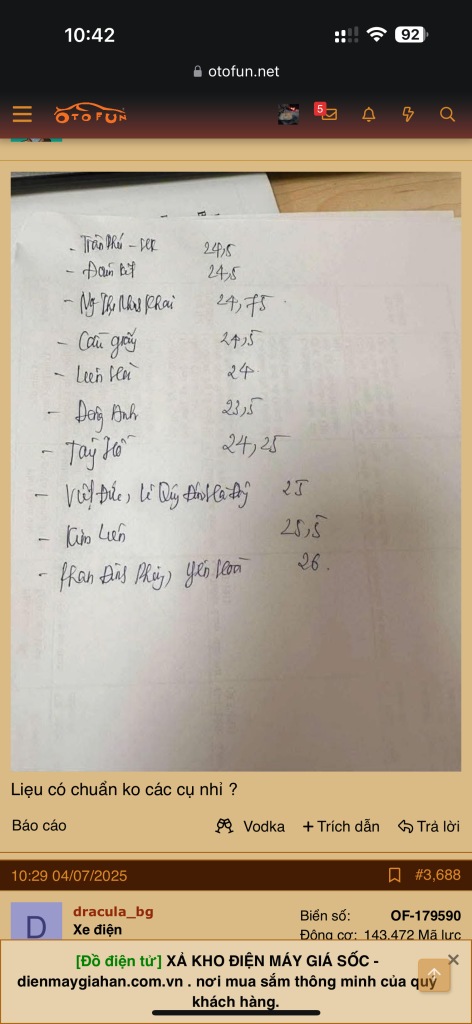 10:42
92
otofun.net
OTOFUN
5
- Trần Phú - 24,5
- 24,5
- Ng Thị Minh Khai 24,75
- Cầu giấy 24,5
- 24
- Đông Anh 23,5
- Tây Hồ 24,25
- Việt Đức, Lê Quý Đôn Hà Đông 25
- Kim Liên 25,5
- Phan Đình Phùng, Yên Hoà 26.
Liệu có chuẩn ko các cụ nhỉ ?
Báo cáo Vodka + Trích dẫn Trả lời
10:29 04/07/2025 #3,688
D dracula_bg Biển số: OF-179590
Xe điện Động cơ: 143,472 Mã lực
[Đồ điện tử] XẢ KHO ĐIỆN MÁY GIÁ SỐC -
dienmaygiahan.com.vn . nơi mua sắm thông minh của quý
khách hàng.